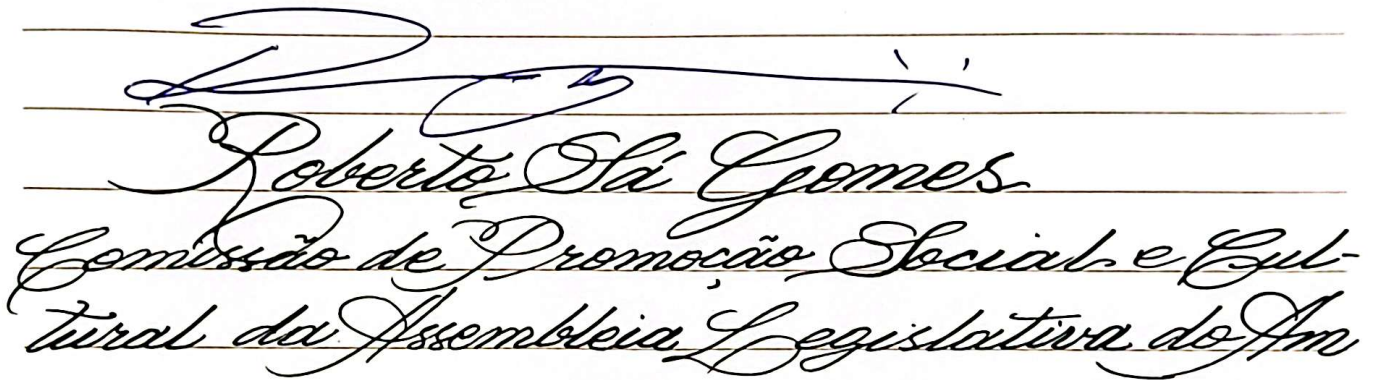 Roberto Sá Gomes
Comissão de Promoção Social e Cul-
tural da Assembleia Legislativa do Am